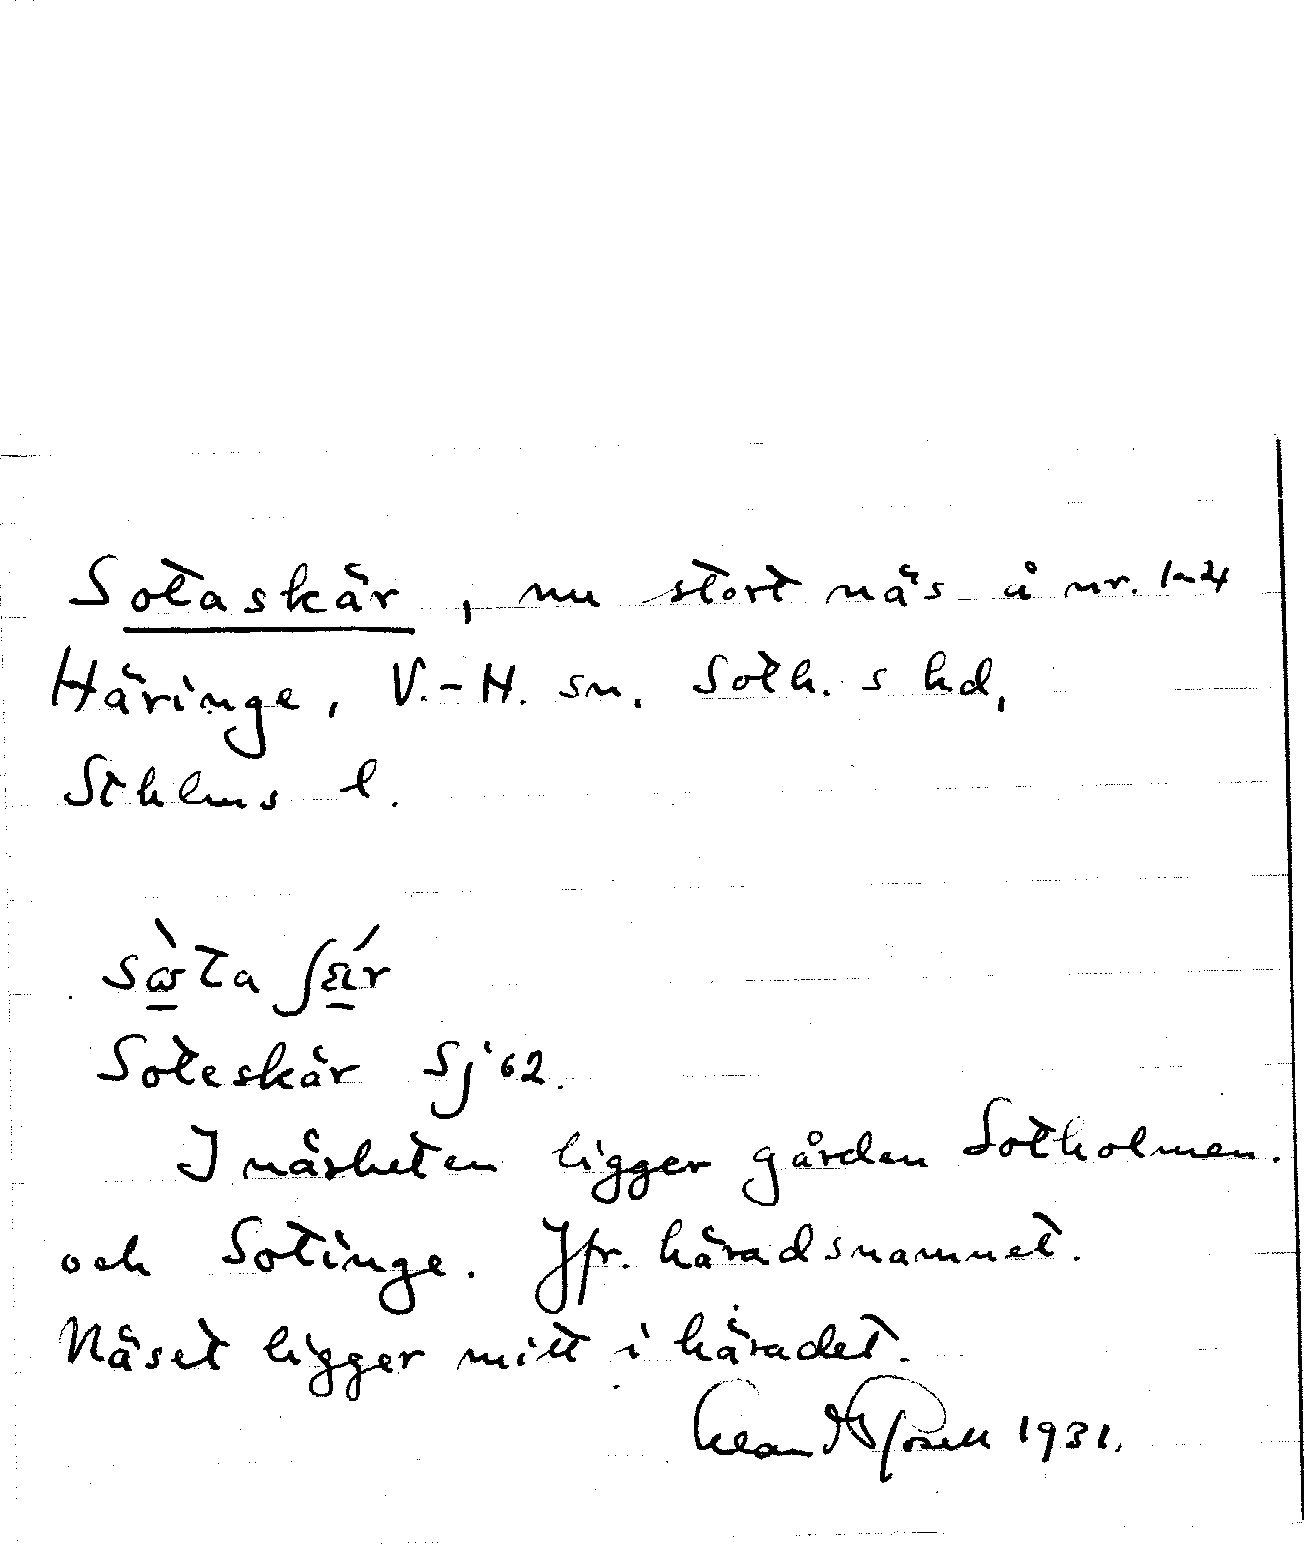 Sotaskär, nu stort näs å nr. 1-4
Häringe, V.-H. sn. Soth. s hd,
Sthlms l.
sɷ̀ta ʃɛɩ́r
Soteskär Sj '62.
I närheten ligger gården Sotholmen.
och Sotinge. Jfr. häradsnamnet.
Näset ligger mitt i häradet.
1931.